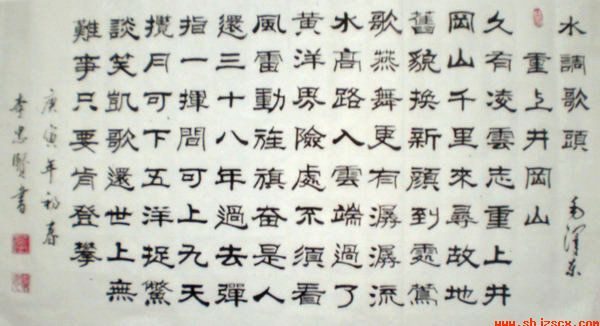 水調歌頭
重上井岡山
毛澤東
久有凌雲志重上井
岡山千里來尋故地
舊貌換新顏到處鶯
歌燕舞更有潺潺流
水高路入雲端過了
黃洋界險處不須看
風雷動旌旗奮是人
還三十八年過去彈
指一揮間可上九天
攬月可下五洋捉鱉
談笑凱歌還世上無
難事只要肯登攀
庚寅年初春
李忠賢書